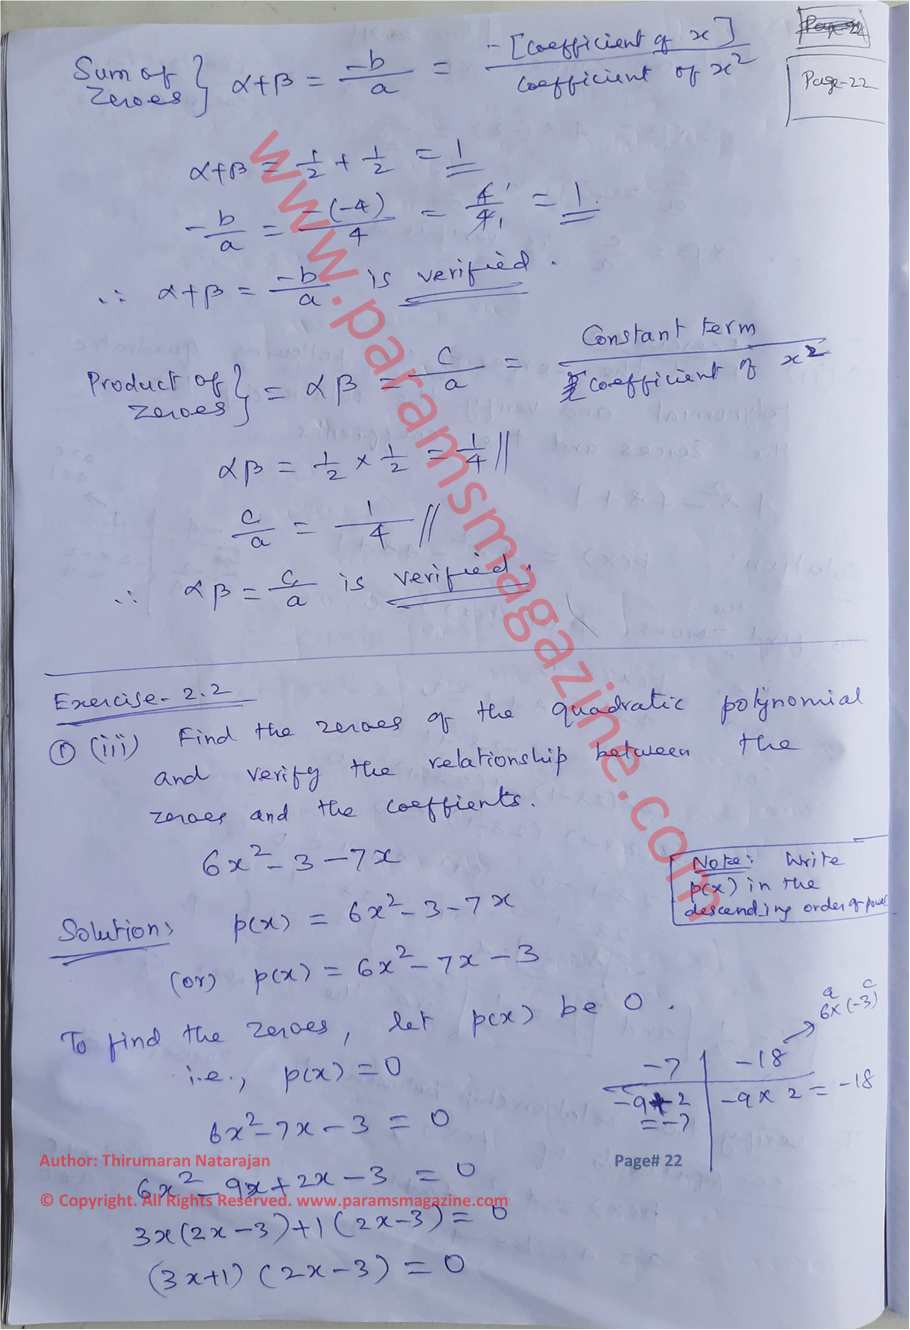 Page-22
Page-22
Sum of Zeroes } α+β = -b/a = -[Coefficient of x]/Coefficient of x²
α+β = 1/2 + 1/2 = 1
-b/a = -(-4)/4 = 4/4 = 1
∴ α+β = -b/a is verified.
Product of Zeroes } = αβ = c/a = Constant term/Coefficient of x²
αβ = 1/2 × 1/2 = 1/4 //
c/a = 1/4 //
∴ αβ = c/a is verified.
Exercise-2.2
① (iii) Find the zeroes of the quadratic polynomial
and verify the relationship between the
zeroes and the coeffients.
6x²-3-7x
Note: Write
p(x) in the
descending order of
Solution: p(x) = 6x²-3-7x
(or) p(x) = 6x²-7x-3
To find the zeroes, let p(x) be 0.
i.e., p(x) = 0
6x²-7x-3 = 0
a c
6×(-3)
-7 | -18
-9+2 | -9×2 = -18
= -7
6x²-9x+2x-3 = 0
3x(2x-3)+1(2x-3) = 0
(3x+1)(2x-3) = 0
www.paramsmagazine.com
Author: Thirumaran Natarajan
Page# 22
© Copyright. All Rights Reserved. www.paramsmagazine.com